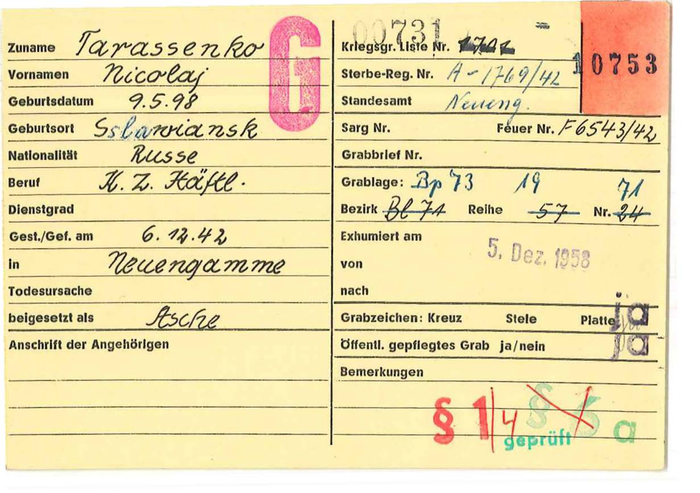 Zuname Tarassenko
Vornamen Nicolaj
Geburtsdatum 9.5.98
Geburtsort Sslawiansk
Nationalität Russe
Beruf K. Z. Häftl.
Dienstgrad
Gest./Gef. am 6. 12. 42
in Neuengamme
Todesursache
beigesetzt als Asche
Anschrift der Angehörigen
G.
00731
Kriegsgr. Liste Nr.
10753
Sterbe-Reg. Nr. A-1769/42
Standesamt Neueng.
Sarg Nr. Feuer Nr. F6543/42
Grabbrief Nr.
Grablage: Bp 73 19 71
Bezirk Bl 71 Reihe 57 Nr. 24
Exhumiert am
5. Dez. 1958
von
nach
Grabzeichen: Kreuz Stele Platte ja
Öffentl. gepflegtes Grab ja/nein ja
Bemerkungen
§ 1/4 § 5 a
geprüft